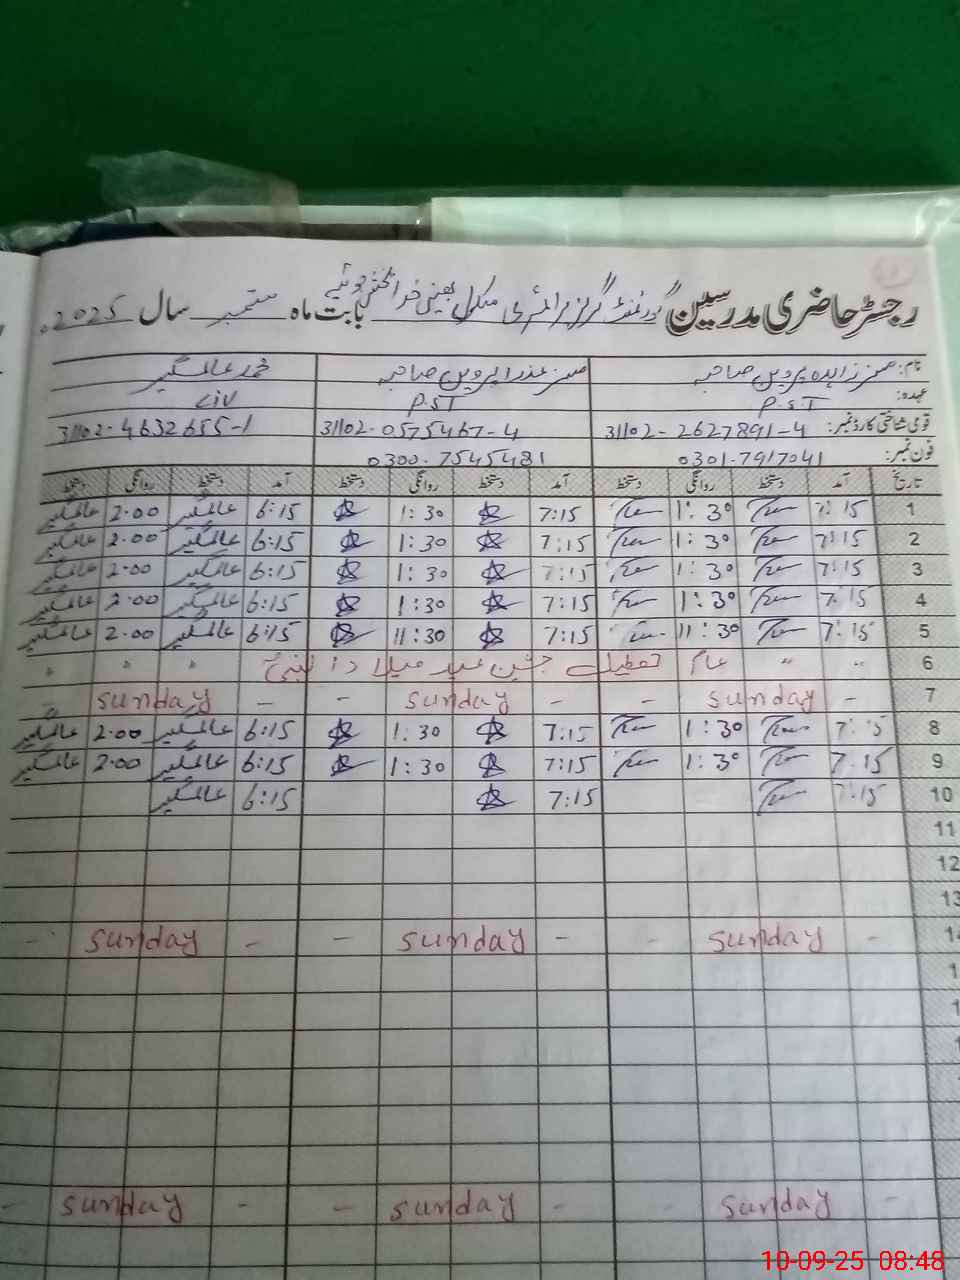 رجسٹر حاضری مدرسین گورنمنٹ گرلز پرائمری سکول بابت ماہ ستمبر سال 2025ء
نام: مسز زاہدہ پروین صاحبہ مسز عذرا پروین صاحبہ محمد عالمگیر
عہدہ: P.S.T P.S.T C/IV
قومی شناختی کارڈ نمبر: 31102-2627891-4 31102-0575467-4 31102-4632655-1
فون نمبر: 0301-7917041 0300-7545481
تاریخ آمد دستخط روانگی دستخط آمد دستخط روانگی دستخط آمد دستخط روانگی دستخط
1 7:15 1:30 7:15 1:30 6:15 عالمگیر 2.00 عالمگیر
2 7:15 1:30 7:15 1:30 6:15 عالمگیر 2.00 عالمگیر
3 7:15 1:30 7:15 1:30 6:15 عالمگیر 2.00 عالمگیر
4 7:15 1:30 7:15 1:30 6:15 عالمگیر 2.00 عالمگیر
5 7:15 11:30 7:15 11:30 6:15 عالمگیر 2.00 عالمگیر
6 " " عام تعطیل جشن عید میلاد النبیؐ " " "
7 - sunday - - sunday - - sunday -
8 7:15 1:30 7:15 1:30 6:15 عالمگیر 2.00 عالمگیر
9 7.15 1:30 7:15 1:30 6:15 عالمگیر 2.00 عالمگیر
10 7:15 7:15 6:15 عالمگیر
11
12
13
14 - sunday - - sunday - - sunday -
1
1
1
1
- sunday - - sunday - - sunday -
10-09-25 08:48